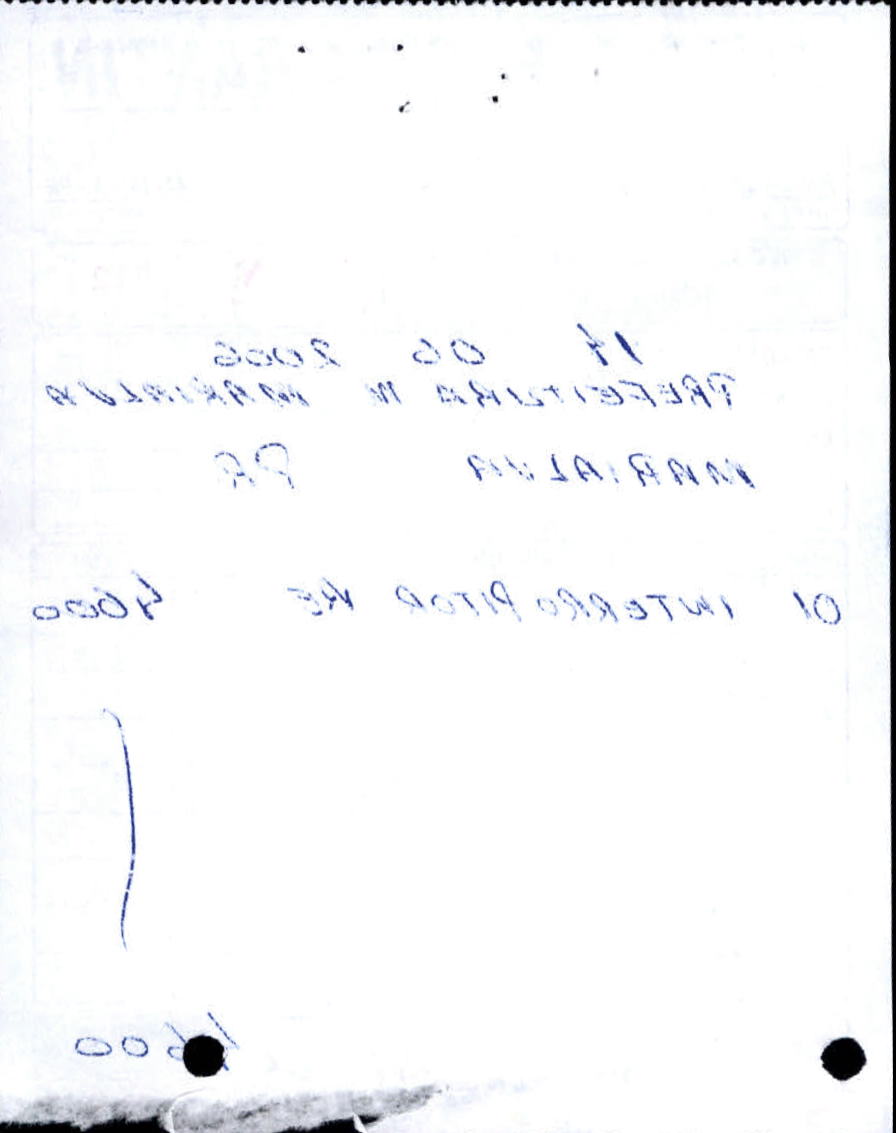 14 06 2006
PREFEITURA M MARIALVA
MARIALVA PR
01 INTERROPITOR RE 4600
4600